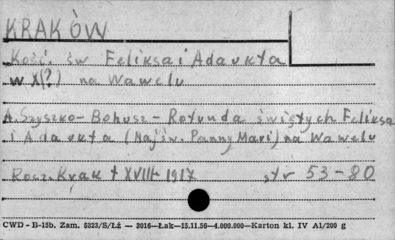 KRAKÓW
Kość. św Feliksa i Adaukta
w X(?) na Wawelu
A. Szyszko-Bohusz - Rotunda świętych Feliksa
i Adaukta (Najśw. Panny Marii) na Wawelu
Rocz. Krak t XVIII 1917 str 53-80
CWD - B-15b. Zam. 5823/S/Lź — 3016—Łak—15.11.56—4.000.000—Karton kl. IV A1/200 g